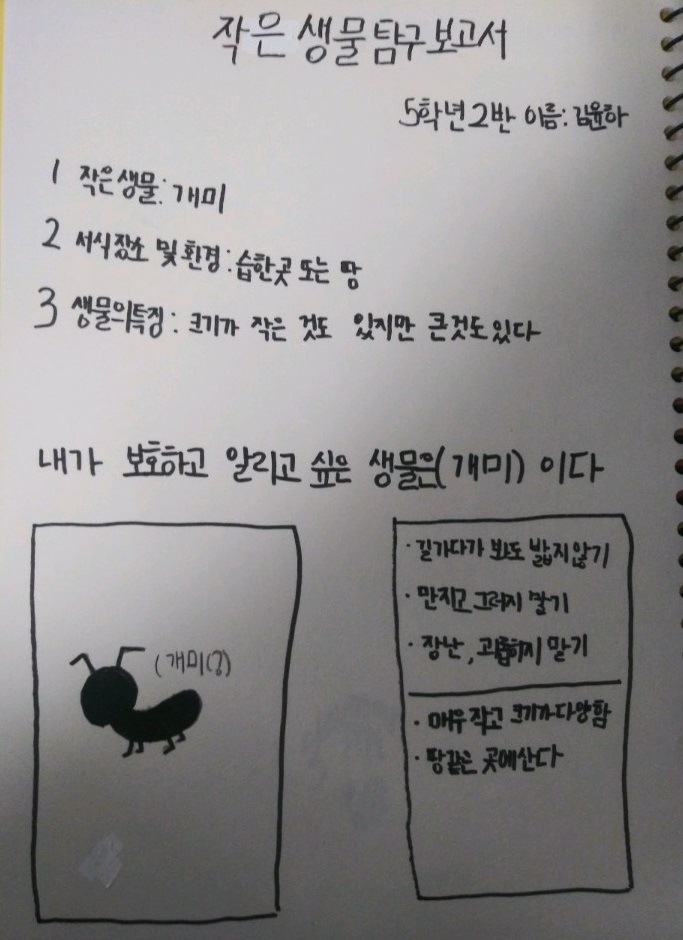 작은 생물 탐구 보고서
5학년 2반 이름: 김윤하
1 작은 생물: 개미
2 서식장소 및 환경: 습한곳 또는 땅
3 생물의특징: 크기가 작은 것도 있지만 큰것도있다
내가 보호하고 알리고 싶은 생물은(개미) 이다
(개미(?)
· 길가다가 봐도 밟지않기
· 만지고 그러지 말기
· 장난, 괴롭히지 말기
· 매우작고 크기가다양함
· 땅같은 곳에산다